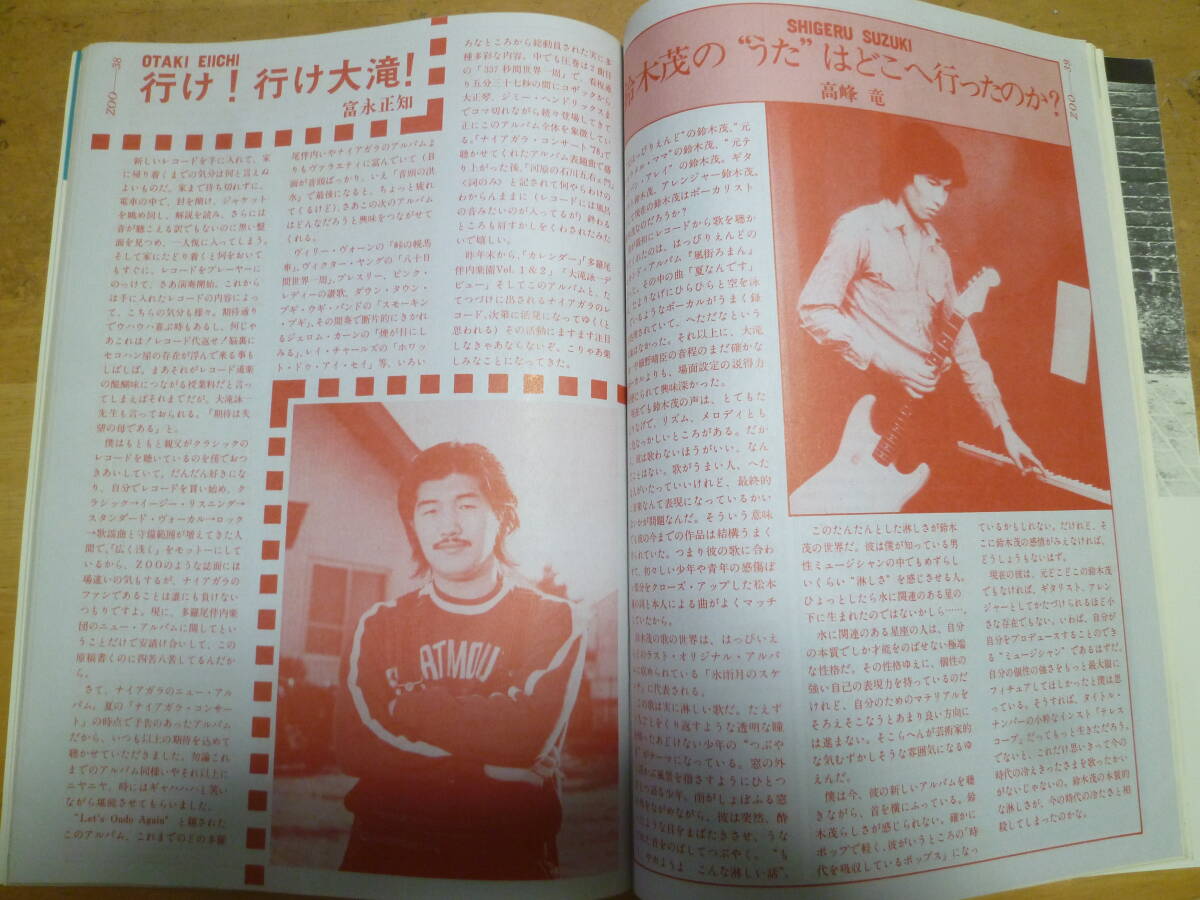 58
ZOO
OTAKI EIICHI
行け!行け大滝!
富永正知
新しいレコードを手に入れて、家
に帰り着くまでの気分は何と言えぬ
よいものだ。家まで待ち切れずに、
電車の中で、封を開け、ジャケット
を眺め回し、解説を読み、さらには
音が聴こえる訳でもないのに黒い盤
面を見つめ、一人悦に入ってしまう。
そして家にたどり着くと何をおいて
もすぐに、レコードをプレーヤーに
のっけて、さあ演奏開始。これから
は手に入れたレコードの内容によっ
て、こちらの気分も様々。期待通り
でウハウハ喜ぶ時もあるし、何じゃ
あこれは!レコード代返せ!脳裏に
セコハン屋の存在が浮んで来る事も
しばしば。まあそれがレコード道楽
の醍醐味につながる授業料だと言っ
てしまえばそれまでだが、大滝詠一
先生も言っておられる。「期待は失
望の母である」と。
僕はもともと親父がクラシックの
レコードを聴いているのを側でおつ
きあいしていて、だんだん好きにな
り、自分でレコードを買い始め、ク
ラシック→イージー・リスニング→
スタンダード・ヴォーカル→ロック
→歌謡曲と守備範囲が増えてきた人
間で、「広く浅く」をモットーにして
いるから、ZOOのような誌面には
場違いの気もするが、ナイアガラの
ファンであることは誰にも負けない
つもりですよ。現に、多羅尾伴内楽
団のニュー・アルバムに関してとい
うことだけで安請け合いして、この
原稿書くのに四苦八苦してるんだか
ら。
さて、ナイアガラのニュー・アル
バム。夏の「ナイアガラ・コンサー
ト」の時点で予告のあったアルバム
だから、いつも以上の期待を込めて
聴かせていただきました。勿論これ
までのアルバム同様いやそれ以上に
ニヤニヤ、時にはギャハハハと笑い
ながら堪能させてもらいました。
“Let's Ondo Again”と題された
このアルバム、これまでのどの多羅
尾伴内いやナイアガラのアルバムよ
りもヴァラエティに富んでいて(B
面が音頭ばっかり、いえ「音頭の洪
水」で最後になると、ちょっと疲れ
てくるけど)、さあこの次のアルバム
はどんなだろうと興味をつながせて
くれる。
ヴィリー・ヴォーンの「峠の幌馬
車」、ヴィクター・ヤングの「八十日
間世界一周」、プレスリー、ピンク・
レディーの讃歌、ダウン・タウン・
ブギ・ウギ・バンドの「スモーキン
・ブギ」、その間奏で断片的にきかれ
るジェローム・カーンの「煙が目にし
みる」、レイ・チャールズの「ホワッ
ト・ドゥ・アイ・セイ」等、いろい
ろなところから総動員された実に多
種多彩な内容。中でも圧巻は2曲目
の「337秒間世界一周」で、看板通
り五分三十七秒の間にコザックから
大正琴、ジミー・ヘンドリックスま
でコマ切れながら続々登場してきて
正にこのアルバム全体を象徴してい
る。「ナイアガラ・コンサート'78」で
聴かせてくれたアルバム表題曲で盛
り上がった後、「河原の石川五右ェ門」
<詞のみ>と記されて何やらわけの
わからんままに(レコードには風呂
の音みたいのが入ってるが)終わる
ところも肩すかしをくわされたみた
いで嬉しい。
昨年末から、「カレンダー」「多羅尾
伴内楽園Vol.1&2」「大滝詠一デ
ビュー」そしてこのアルバムと、た
てつづけに出されるナイアガラのレ
コード、次第に活発になってゆく(と
思われる)その活動にますます注目
しなきゃあならないぞ、こりゃあ楽
しみなことになってきた。
ATMOU
SHIGERU SUZUKI
鈴木茂の“うた”はどこへ行ったのか?
高峰 竜
59
ZOO
っぴいえんど”の鈴木茂、“元
・ママ”の鈴木茂、“元テ
ン・アレイ”の鈴木茂。ギタ
鈴木茂、アレンジャー鈴木茂。
て現在の鈴木茂はボーカリスト
茂なのだろうか?
が最初にレコードから歌を聴か
くれたのは、はっぴいえんどの
ンド・アルバム『風街ろまん』
、その中の曲「夏なんです」
たよりなげにひらひらと空を泳
いるようなボーカルがうまく録
されていて、へただなという
象はなかった。それ以上に、大滝
や細野晴臣の音程のまだ確かな
ーカルよりも、場面設定の説得力
感じられて興味深かった。
在でも鈴木茂の声は、とてもた
なげで、リズム、メロディとも
なっかしいところがある。だか
彼は歌わないほうがいい、なん
ことはない。歌がうまい人、へた
人がいたっていいけれど、最終的
音楽なんて表現になっているかい
かが問題なんだ。そういう意味
も彼の今までの作品は結構うまく
されていた。つまり彼の歌に合わ
て、初々しい少年や青年の感傷ぽ
部分をクローズ・アップした松本
の詞と本人による曲がよくマッチ
ていたから。
鈴木茂の歌の世界は、はっぴいえ
のラスト・オリジナル・アルバ
に収められている「氷雨月のスケ
チ」に代表される。
の歌は実に淋しい歌だ。たえず
ことをくり返すような透明な瞳
持ったあどけない少年の“つぶや
がテーマになっている。窓の外
ぶ風景を指さすようにひとつ
う語る少年。雨がしょぼふる窓
をながめながら、彼は突然、酔
ような目をまばたきさせ、うな
た首をのばしてつぶやく。“も
やめようよ こんな淋しい話”。
このたんたんとした淋しさが鈴木
茂の世界だ。彼は僕が知っている男
性ミュージシャンの中でもめずらし
いくらい“淋しさ”を感じさせる人。
ひょっとしたら水に関連のある星の
下に生まれたのではないかしら……。
水に関連のある星座の人は、自分
の本質でしか才能をのばせない極端
な性格だ。その性格ゆえに、個性の
強い自己の表現力を持っているのだ
けれど、自分のためのマテリアルを
そろえそこなうとあまり良い方向に
は進まない。そこらへんが芸術家的
な気むずかしそうな雰囲気になるゆ
えんだ。
僕は今、彼の新しいアルバムを聴
きながら、首を横にふっている。鈴
木茂らしさが感じられない。確かに
ポップで軽く、彼がいうところの「時
代を吸収しているポップス」になっ
ているかもしれない。だけれど、そ
こに鈴木茂の感情がみえなければ、
どうしようもないはず。
現在の彼は、元どこどこの鈴木茂
でもなければ、ギタリスト、アレン
ジャーとしてかたづけられるほど小
さな存在でもない。いわば、自分が
自分をプロデュースすることのでき
る“ミュージシャン”であるはずだ。
自分の個性の強さをもっと最大限に
フィチュアしてほしかったと僕は思
っている。そうすれば、タイトル・
ナンバーの小粋なインスト「テレス
コープ」だってもっと生きただろう。
でないと、これだけ思いきって今の
時代の冷えきったさまを歌ったかい
がないじゃないの。鈴木茂の本質的
な淋しさが、今の時代の冷たさと相
殺してしまったのかな。